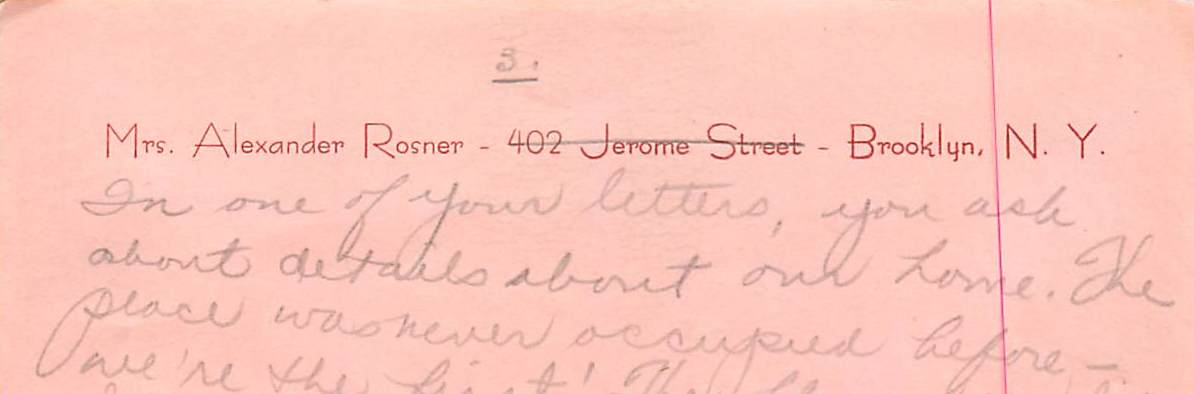 3.
Mrs. Alexander Rosner - 402 Jerome Street - Brooklyn, N. Y.
In one of your letters, you ask
about details about our home. The
place was never occupied before -
we're the first! The